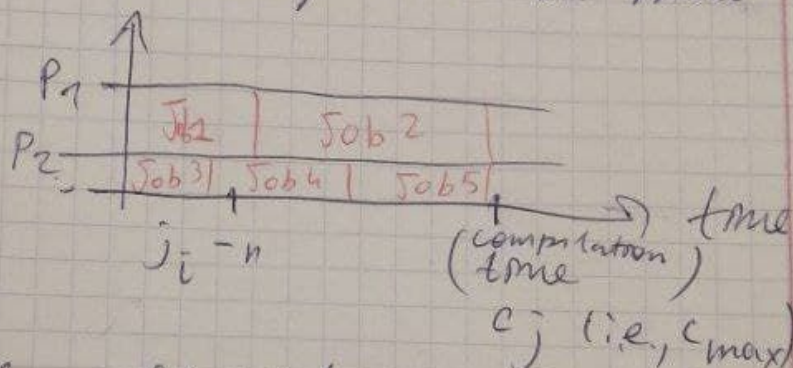 P1
Job1 Job 2
P2
Job3 Job4 Job5
time
ji -n
(compilation time)
cj (i.e., cmax)